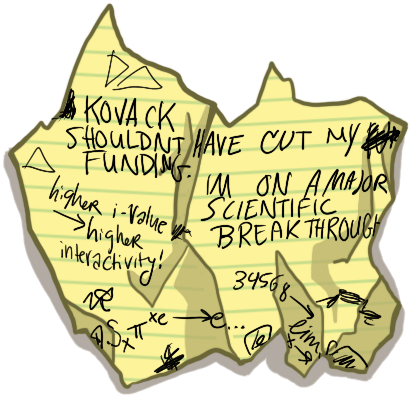 KOVACK
SHOULDNT HAVE CUT MY
FUNDING.
IM ON A MAJOR
SCIENTIFIC
BREAKTHROUGH
higher i-value
→ higher
interactivity!
34568 →